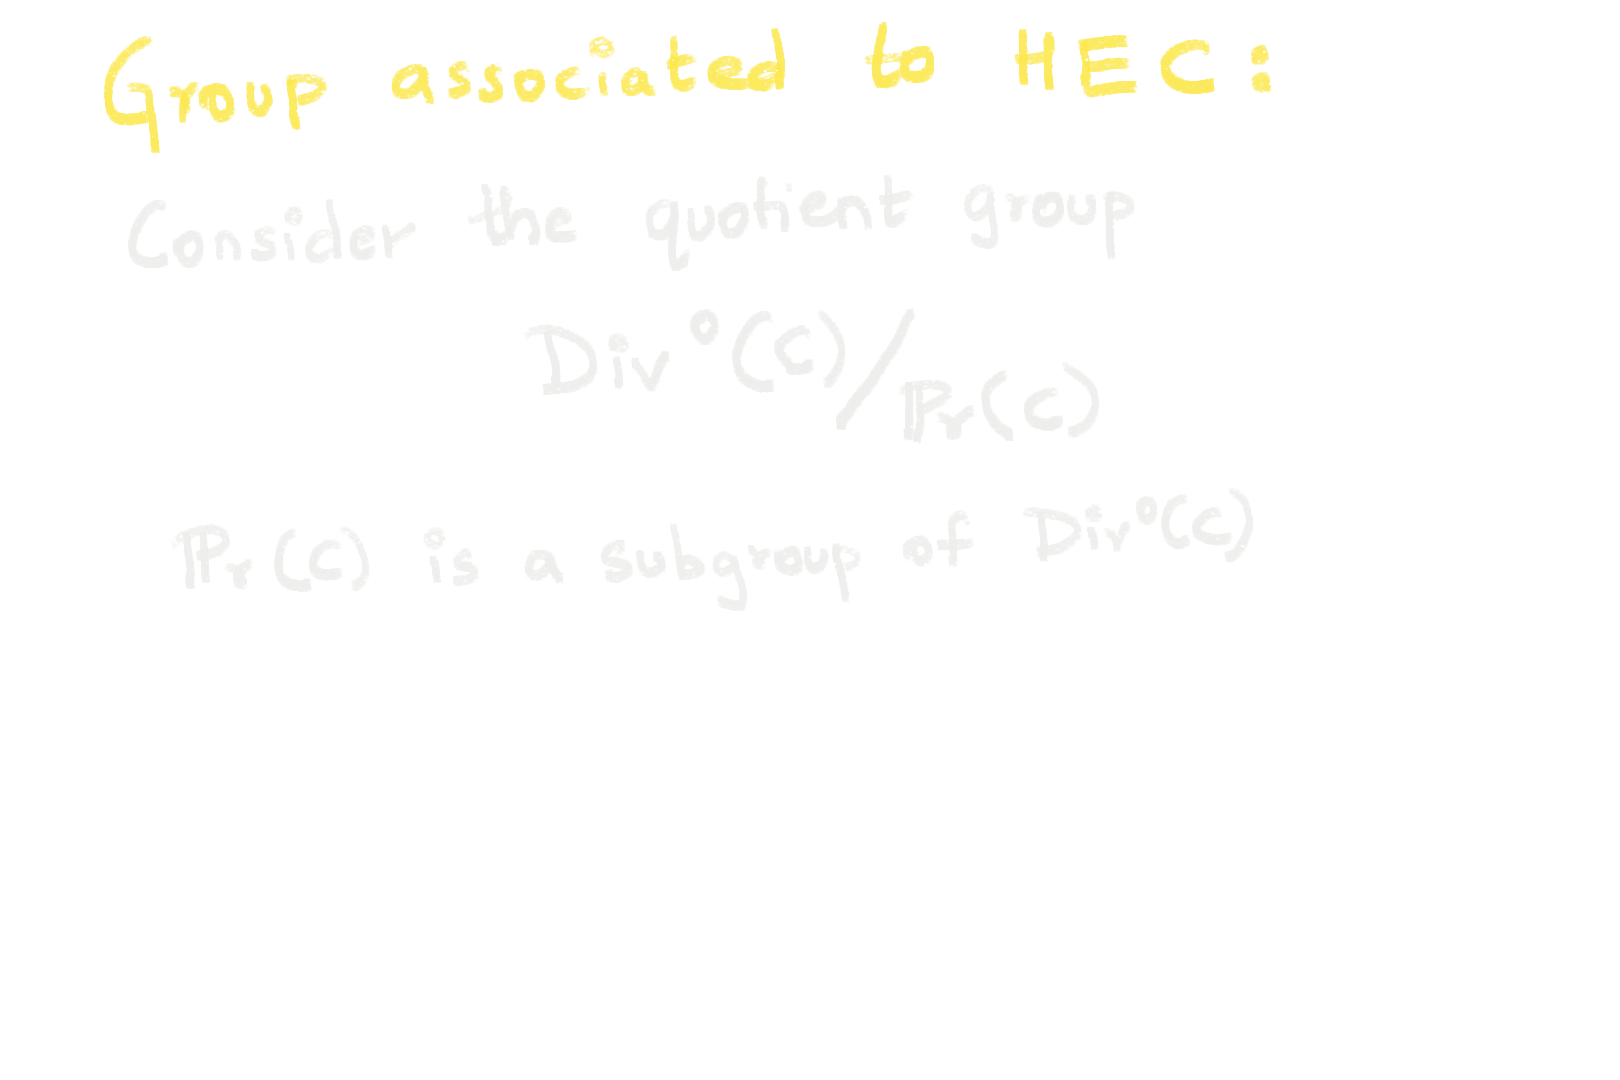 Group associated to HEC:
Consider the quotient group
Div°(C)/ℙr(C)
ℙr(C) is a subgroup of Div°(C)